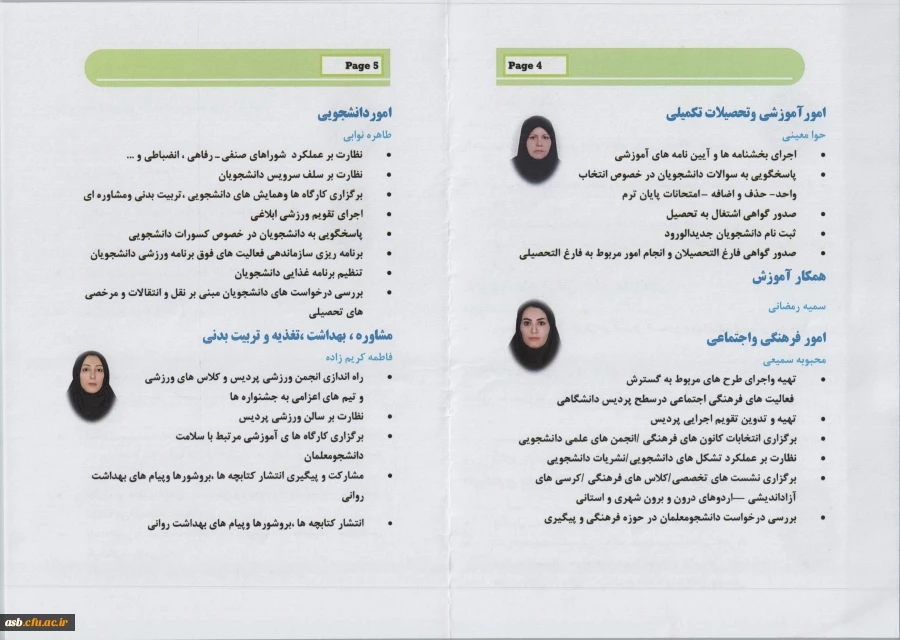 Page 4
امورآموزشی وتحصیلات تکمیلی
حوا معینی
• اجرای بخشنامه ها و آیین نامه های آموزشی
• پاسخگویی به سوالات دانشجویان در خصوص انتخاب
واحد- حذف و اضافه –امتحانات پایان ترم
• صدور گواهی اشتغال به تحصیل
• ثبت نام دانشجویان جدیدالورود
• صدور گواهی فارغ التحصیلان و انجام امور مربوط به فارغ التحصیلی
همکار آموزش
سمیه رمضانی
امور فرهنگی واجتماعی
محبوبه سمیعی
• تهیه واجرای طرح های مربوط به گسترش
فعالیت های فرهنگی اجتماعی درسطح پردیس دانشگاهی
• تهیه و تدوین تقویم اجرایی پردیس
• برگزاری انتخابات کانون های فرهنگی /انجمن های علمی دانشجویی
• نظارت بر عملکرد تشکل های دانشجویی/نشریات دانشجویی
• برگزاری نشست های تخصصی/کلاس های فرهنگی /کرسی های
آزاداندیشی —اردوهای درون و برون شهری و استانی
• بررسی درخواست دانشجومعلمان در حوزه فرهنگی و پیگیری
Page 5
اموردانشجویی
طاهره نوابی
• نظارت بر عملکرد شوراهای صنفی – رفاهی ، انضباطی و ...
• نظارت بر سلف سرویس دانشجویان
• برگزاری کارگاه ها وهمایش های دانشجویی ،تربیت بدنی ومشاوره ای
• اجرای تقویم ورزشی ابلاغی
• پاسخگویی به دانشجویان در خصوص کسورات دانشجویی
• برنامه ریزی سازماندهی فعالیت های فوق برنامه ورزشی دانشجویان
• تنظیم برنامه غذایی دانشجویان
• بررسی درخواست های دانشجویان مبنی بر نقل و انتقالات و مرخصی
های تحصیلی
مشاوره ، بهداشت ،تغذیه و تربیت بدنی
فاطمه کریم زاده
• راه اندازی انجمن ورزشی پردیس و کلاس های ورزشی
و تیم های اعزامی به جشنواره ها
• نظارت بر سالن ورزشی پردیس
• برگزاری کارگاه ها ی آموزشی مرتبط با سلامت
دانشجومعلمان
• مشارکت و پیگیری انتشار کتابچه ها ،بروشورها وپیام های بهداشت
روانی
• انتشار کتابچه ها ،بروشورها وپیام های بهداشت روانی
asb.cfu.ac.ir